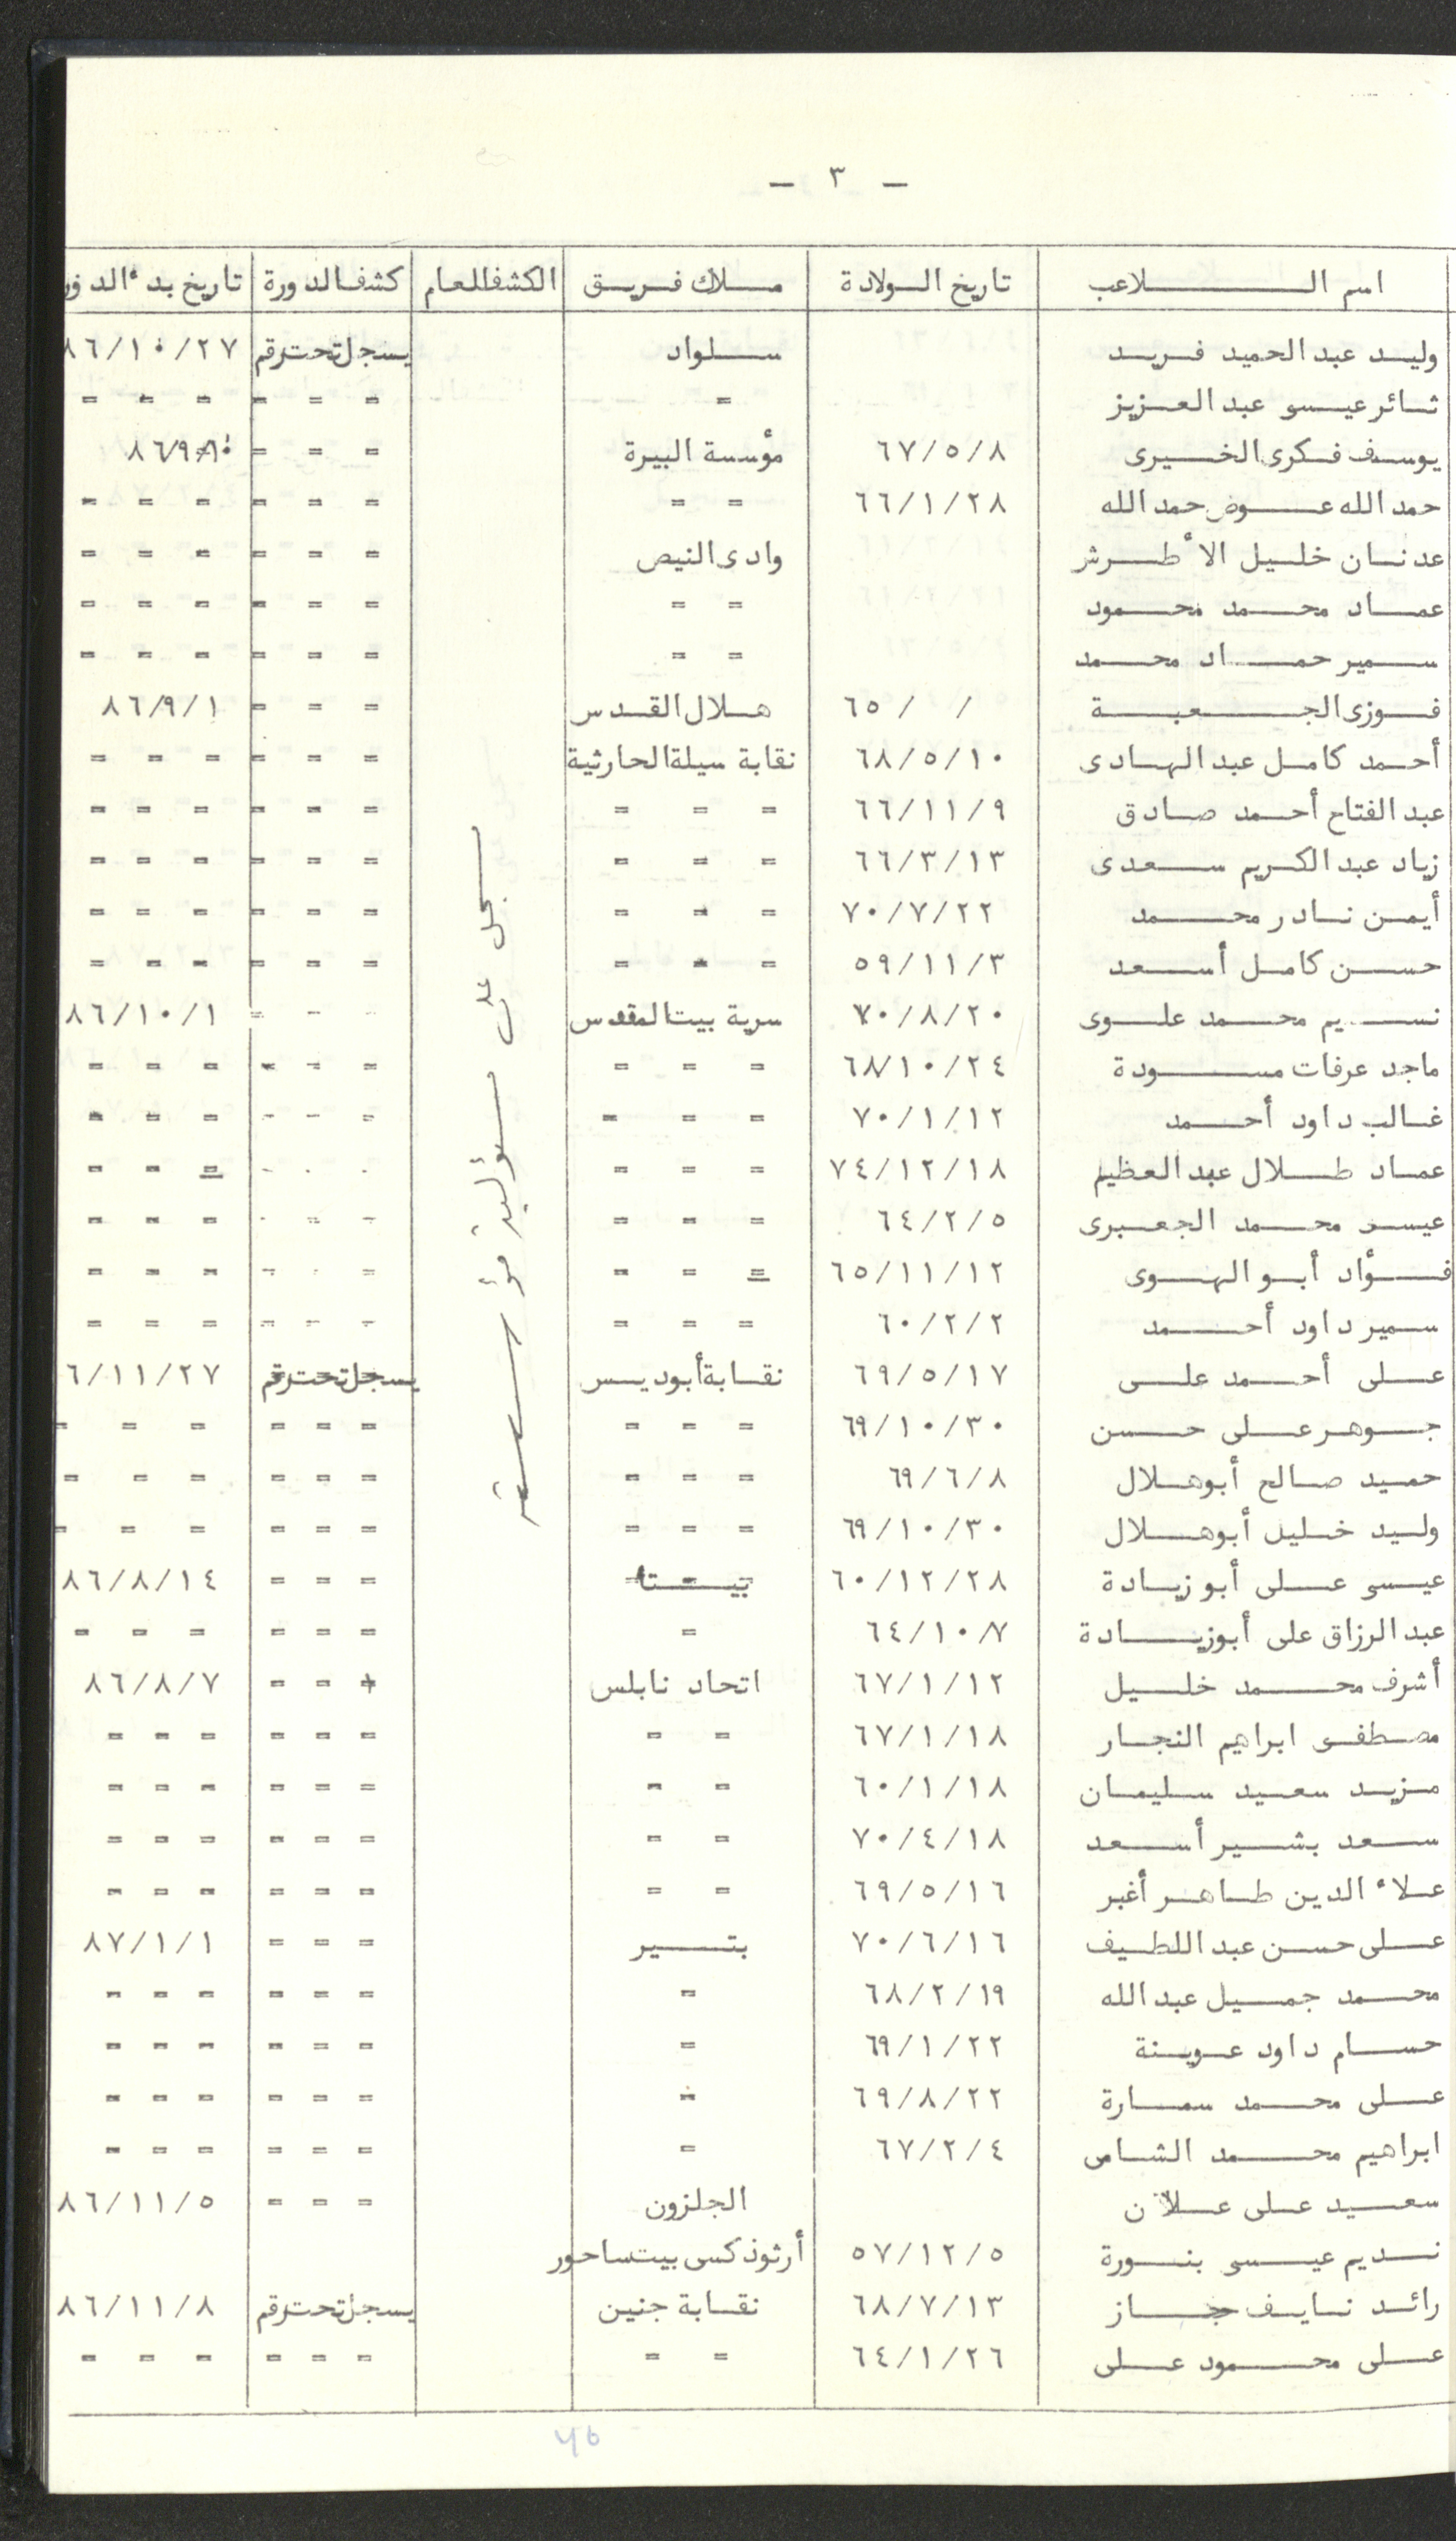 - ٣ -
اسم اللاعب تاريخ الولادة ملاك فريق الكشف العام كشف الدورة تاريخ بدء الدور
وليد عبد الحميد فريد سلواد يسجل تحت رقم ٨٦/١٠/٢٧
ثائر عيسو عبد العزيز = = = = = = =
يوسف فكرى الخيرى ٦٧/٥/٨ مؤسسة البيرة = = =
حمد الله عوض حمد الله ٦٦/١/٢٨ = = = = = = = =
عدنان خليل الأطرش وادى النيص = = = = = =
عماد محمد محمود = = = = = = = =
سمير حماد محمد = = = = = = = =
فوزى الجعبة / / ٦٥ هلال القدس = = = ٨٦/٩/١
أحمد كامل عبد الهادى ٦٨/٥/١٠ نقابة سيلة الحارثية = = = = = =
عبد الفتاح أحمد صادق ٦٦/١١/٩ = = = = = = = = =
زياد عبد الكريم سعدى ٦٦/٣/١٣ = = = = = = = = =
أيمن نادر محمد ٧٠/٧/٢٢ = = = = = = = = =
حسن كامل أسعد ٥٩/١١/٣ = = = = = = = = =
نسيم محمد علوى ٧٠/٨/٢٠ سرية بيت المقدس - - = ٨٦/١٠/١
ماجد عرفات مسودة ٦٨/١٠/٢٤ = = = = = = = = =
غالب داود أحمد ٧٠/١/١٢ = = = = - - = = =
عماد طلال عبد العظيم ٧٤/١٢/١٨ = = = - - - = = =
عيسى محمد الجعبرى ٦٤/٢/٥ = = = - - - = = =
فؤاد أبو الهوى ٦٥/١١/١٢ = = = = - - = = =
سمير داود أحمد ٦٠/٢/٢ = = = - - - = = =
على أحمد على ٦٩/٥/١٧ نقابة أبوديس يسجل تحت رقم ٦/١١/٢٧
جوهر على حسن ٦٩/١٠/٣٠ = = = = = = = = =
حميد صالح أبوهلال ٦٩/٦/٨ = = = = = = = = =
وليد خليل أبوهلال ٦٩/١٠/٣٠ = = = = = = = = =
عيسى على أبو زيادة ٦٠/١٢/٢٨ بيتا = = = ٨٦/٨/١٤
عبد الرزاق على أبوزيادة ٦٤/١٠/٧ = = = = = = =
أشرف محمد خليل ٦٧/١/١٢ اتحاد نابلس = = = ٨٦/٨/٧
مصطفى ابراهيم النجار ٦٧/١/١٨ = = = = = = = =
مزيد سعيد سليمان ٦٠/١/١٨ = = = = = = = =
سعد بشير أسعد ٧٠/٤/١٨ = = = = = = = =
علاء الدين طاهر أغبر ٦٩/٥/١٦ = = = = = = = =
على حسن عبد اللطيف ٧٠/٦/١٦ بتير = = = ٨٧/١/١
محمد جميل عبد الله ٦٨/٢/١٩ = = = = = = =
حسام داود عوينة ٦٩/١/٢٢ = = = = = = =
على محمد سمارة ٦٩/٨/٢٢ = = = = = = =
ابراهيم محمد الشامى ٦٧/٢/٤ = = = = = = =
سعيد على علان الجلزون = = = ٨٦/١١/٥
نديم عيسى بنورة ٥٧/١٢/٥ أرثوذكسى بيت ساحور
رائد نايف جاز ٦٨/٧/١٣ نقابة جنين يسجل تحت رقم ٨٦/١١/٨
على محمود على ٦٤/١/٢٦ = = = = = = = =
سجل على مسؤولية مؤسسته